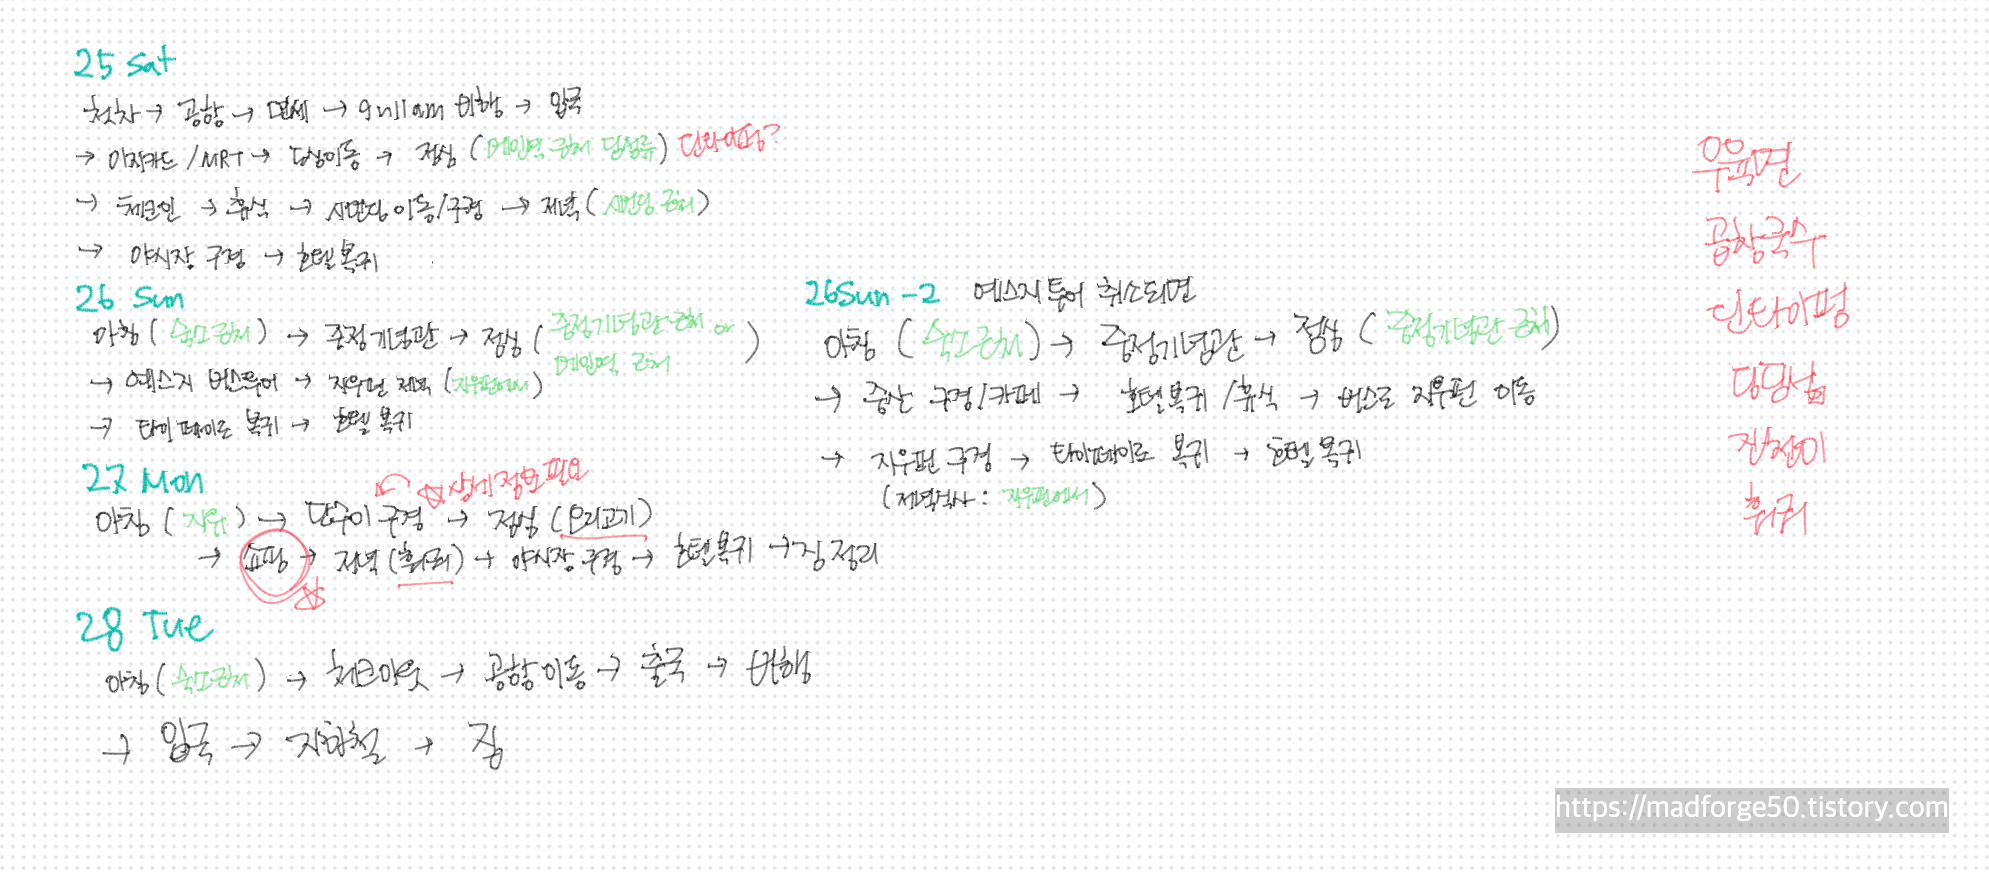 25 Sat
첫차 → 공항 → 면세 → 9시 11am 비행 → 입국
→ 이지카드/MRT → 이동 → 점심 (메인역 근처 딤섬류) 단타이펑?
→ 체크인 → 휴식 → 시먼딩 이동/구경 → 저녁 (시먼딩 근처)
→ 야시장 구경 → 호텔 복귀
26 Sun
아침 (숙소근처) → 중정기념관 → 점심 (중정기념관 근처 or 메인역 근처)
→ 예스지 버스투어 → 지우펀 저녁 (지우펀에서)
→ 타이페이로 복귀 → 호텔 복귀
26 Sun -2 예스지 투어 취소되면
아침 (숙소근처) → 중정기념관 → 점심 (중정기념관 근처)
→ 중산 구경/카페 → 호텔 복귀/휴식 → 버스로 지우펀 이동
→ 지우펀 구경 → 타이페이로 복귀 → 호텔 복귀
(저녁식사 : 지우펀에서)
27 Mon
☆ 상세 정보 필요
아침 (자유) → 단수이 구경 → 점심 (오리고기)
→ 쇼핑 → 저녁 (훠궈) → 야시장 구경 → 호텔 복귀 → 짐정리
28 Tue
아침 (숙소근처) → 체크아웃 → 공항 이동 → 출국 → 비행
→ 입국 → 지하철 → 집
우육면
곱창국수
딘타이펑
훠궈
https://madforge50.tistory.com